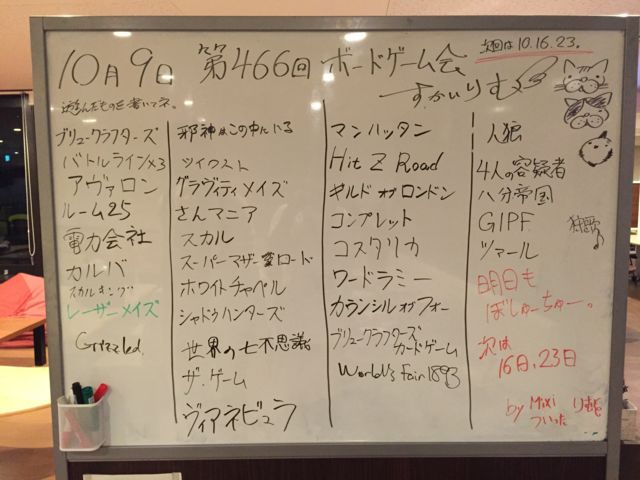 次回は10.16.23.
10月9日 第466回 ボードゲーム会
すかいりむ
遊んだものを書いてネ。
ブリュークラフターズ
バトルライン×3
アヴァロン
ルーム25
電力会社
カルバ
スカルキング
レーザーメイズ
Grizzled.
邪神はこの中にいる
ツイクスト
グラヴィティメイズ
さんマニア
スカル
スーパーマザー愛ロード
ホワイトチャペル
シャドウハンターズ
世界の七不思議
ザ・ゲーム
ヴィアネビュラ
マンハッタン
Hit Z Road
ギルドオブロンドン
コンプレット
コスタリカ
ワードラミー
カウンシルオブフォー
ブリュークラフターズ
カードゲーム
World's Fair 1893
人狼
4人の容疑者
八分帝国
GIPF
ツァール
明日も
ぼしゅーちゅー。
次は
16日、23日
by Mixi
ついった